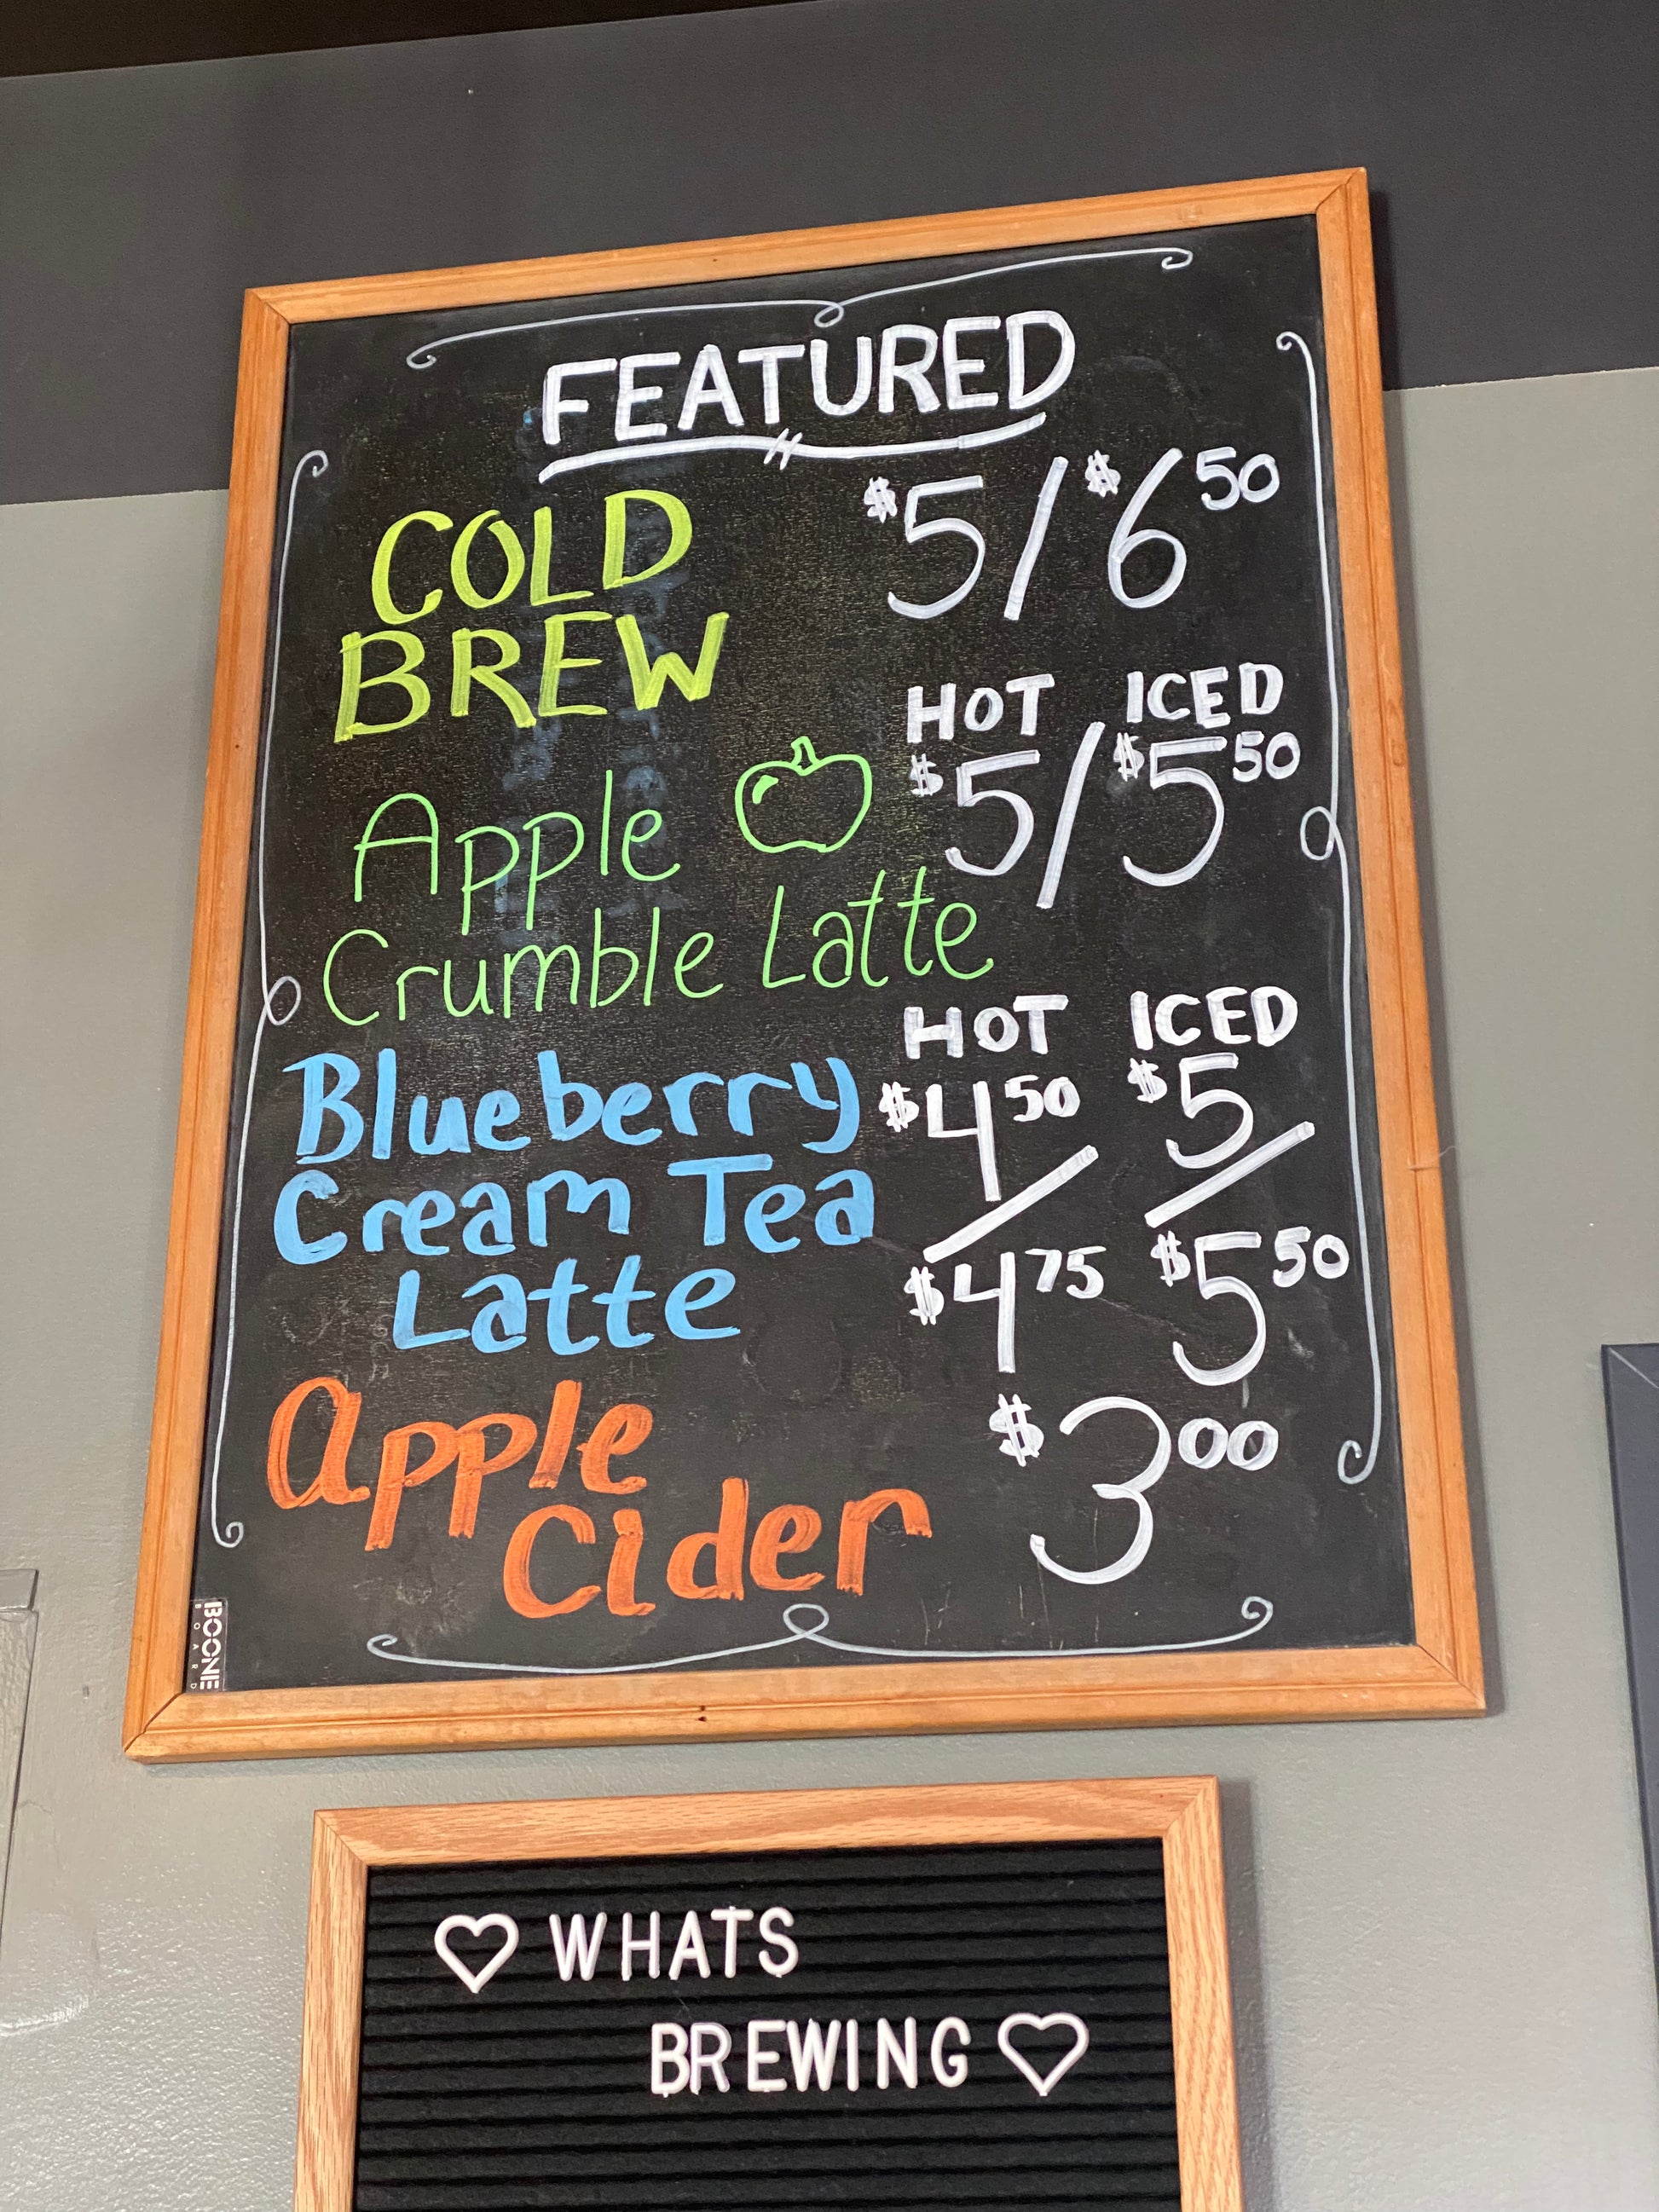 FEATURED
COLD BREW $5/$6 50
HOT ICED
Apple $5/$5 50
Crumble Latte
HOT ICED
Blueberry $4 50 $5
Cream Tea / /
Latte $4 75 $5 50
Apple $3 00
Cider
BOONE
BOARD
♡ WHATS
BREWING ♡